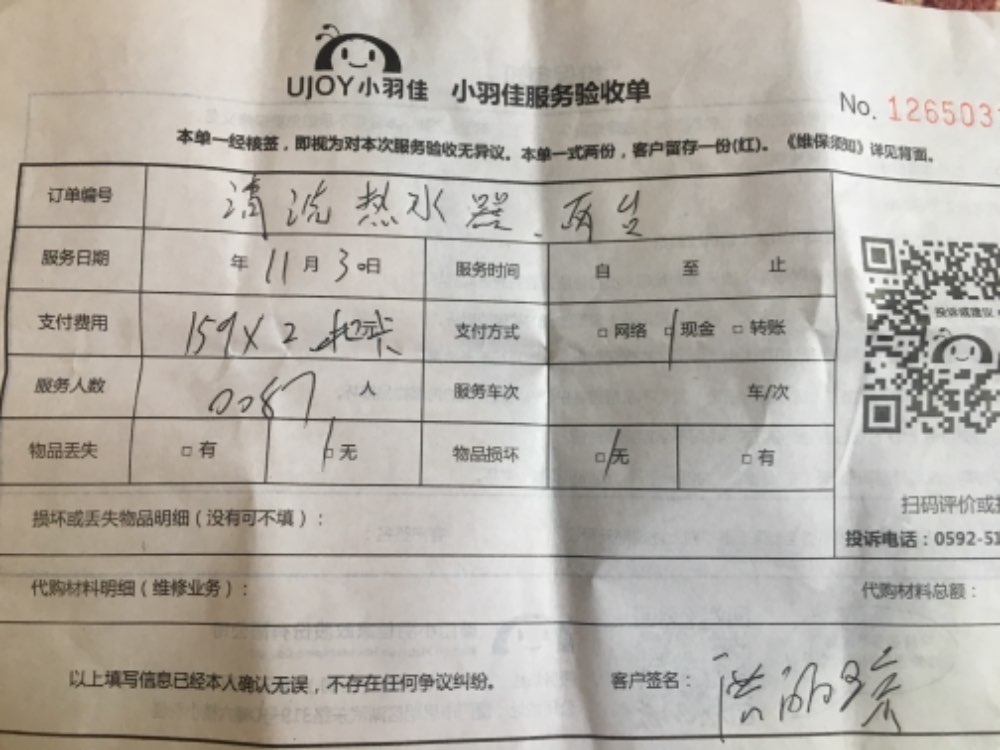 UJOY小羽佳 小羽佳服务验收单
No. 126503
本单一经核签，即视为对本次服务验收无异议。本单一式两份，客户留存一份(红)。《维保须知》详见背面。
订单编号 清洗热水器、两台
服务日期 年 11 月 30 日 服务时间 自 至 止
支付费用 159X2 元 支付方式 □ 网络 □ 现金 □ 转账
服务人数 0087 人 服务车次 车/次
物品丢失 □ 有 □ 无 物品损坏 □ 无 □ 有
投诉或建议
扫码评价或
损坏或丢失物品明细（没有可不填）：
投诉电话：0592-51
代购材料明细（维修业务）： 代购材料总额：
以上填写信息已经本人确认无误，不存在任何争议纠纷。 客户签名：